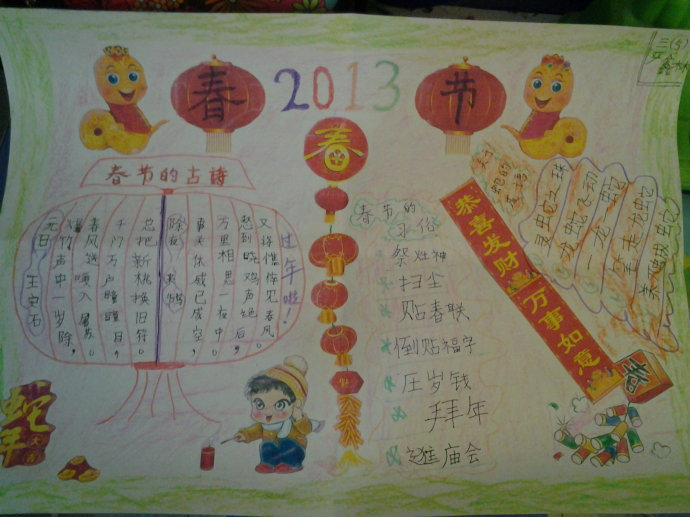 三(5)
春
2013
节
春
春节的古诗
元日 王安石
爆竹声中一岁除,
春风送暖入屠苏。
千门万户曈曈日,
总把新桃换旧符。
除夜
事关休戚已成空,
万里相思一夜中。
愁到晓鸡声绝后,
又将憔悴见春风。
过年啦!
春节的
习俗
祭灶神
扫尘
贴春联
倒贴福字
压岁钱
拜年
逛庙会
恭喜发财 万事如意
灵蛇之珠
龙蛇飞动
一龙一蛇
笔走龙蛇
春
蛇年
大吉